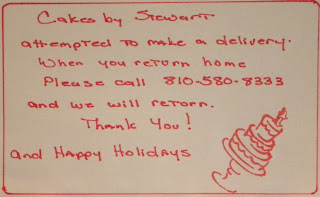 Cakes by Stewart
attempted to make a delivery.
When you return home
Please call 810-580-8333
and we will retorn.
Thank You!
and Happy Holidays